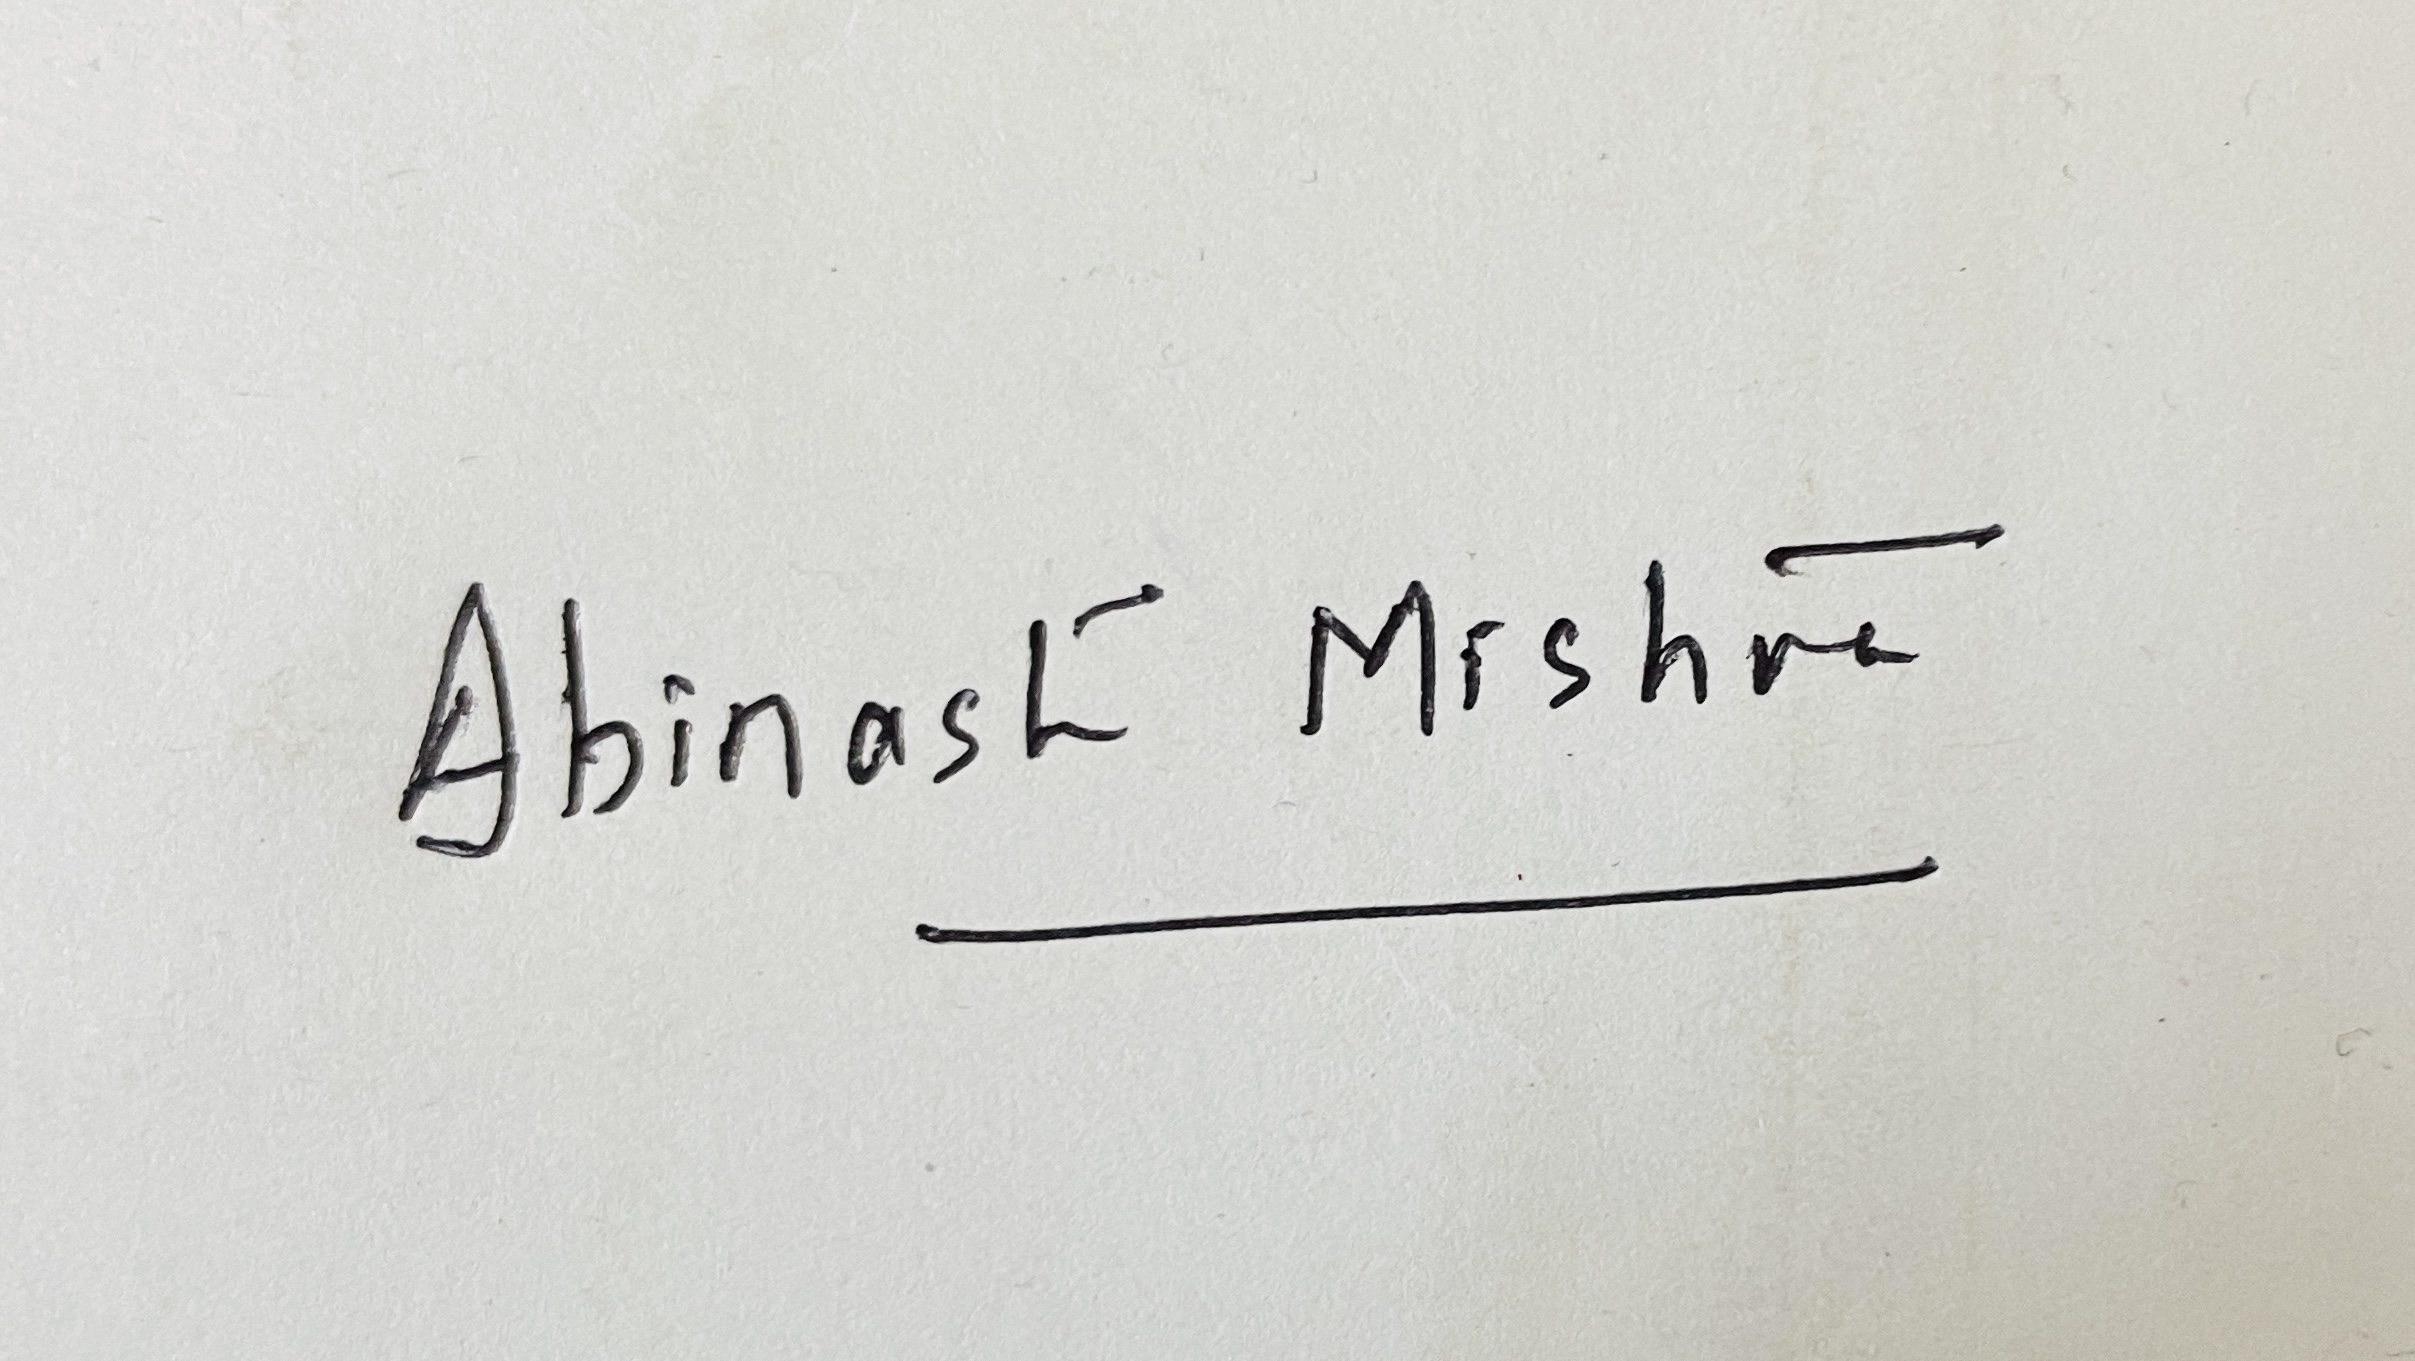 Abinash Mishra